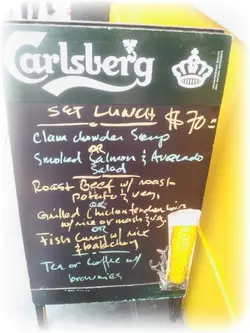 Carlsberg
SET LUNCH $70=
Clam chowder Soup
OR
Smoked Salmon & Avocado
Salad
Roast Beef w/ roast
potato & veg,
OR
Grilled Chicken tenderloin
w/ rice or mash & veg.
OR
Fish Curry w/ rice
Tea or Coffee w/
brownies